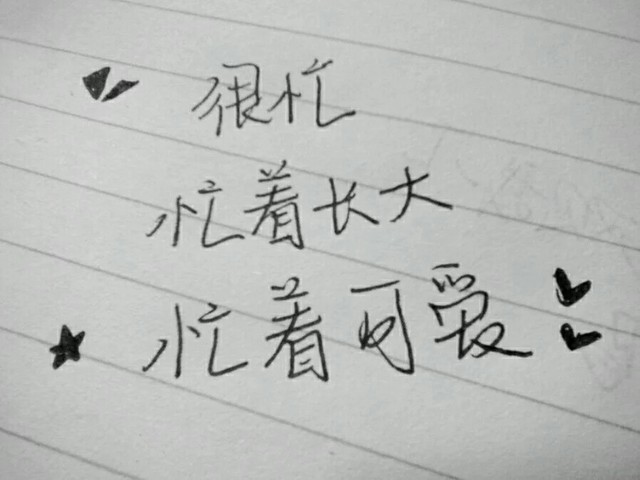 很忙
忙着长大
忙着可爱